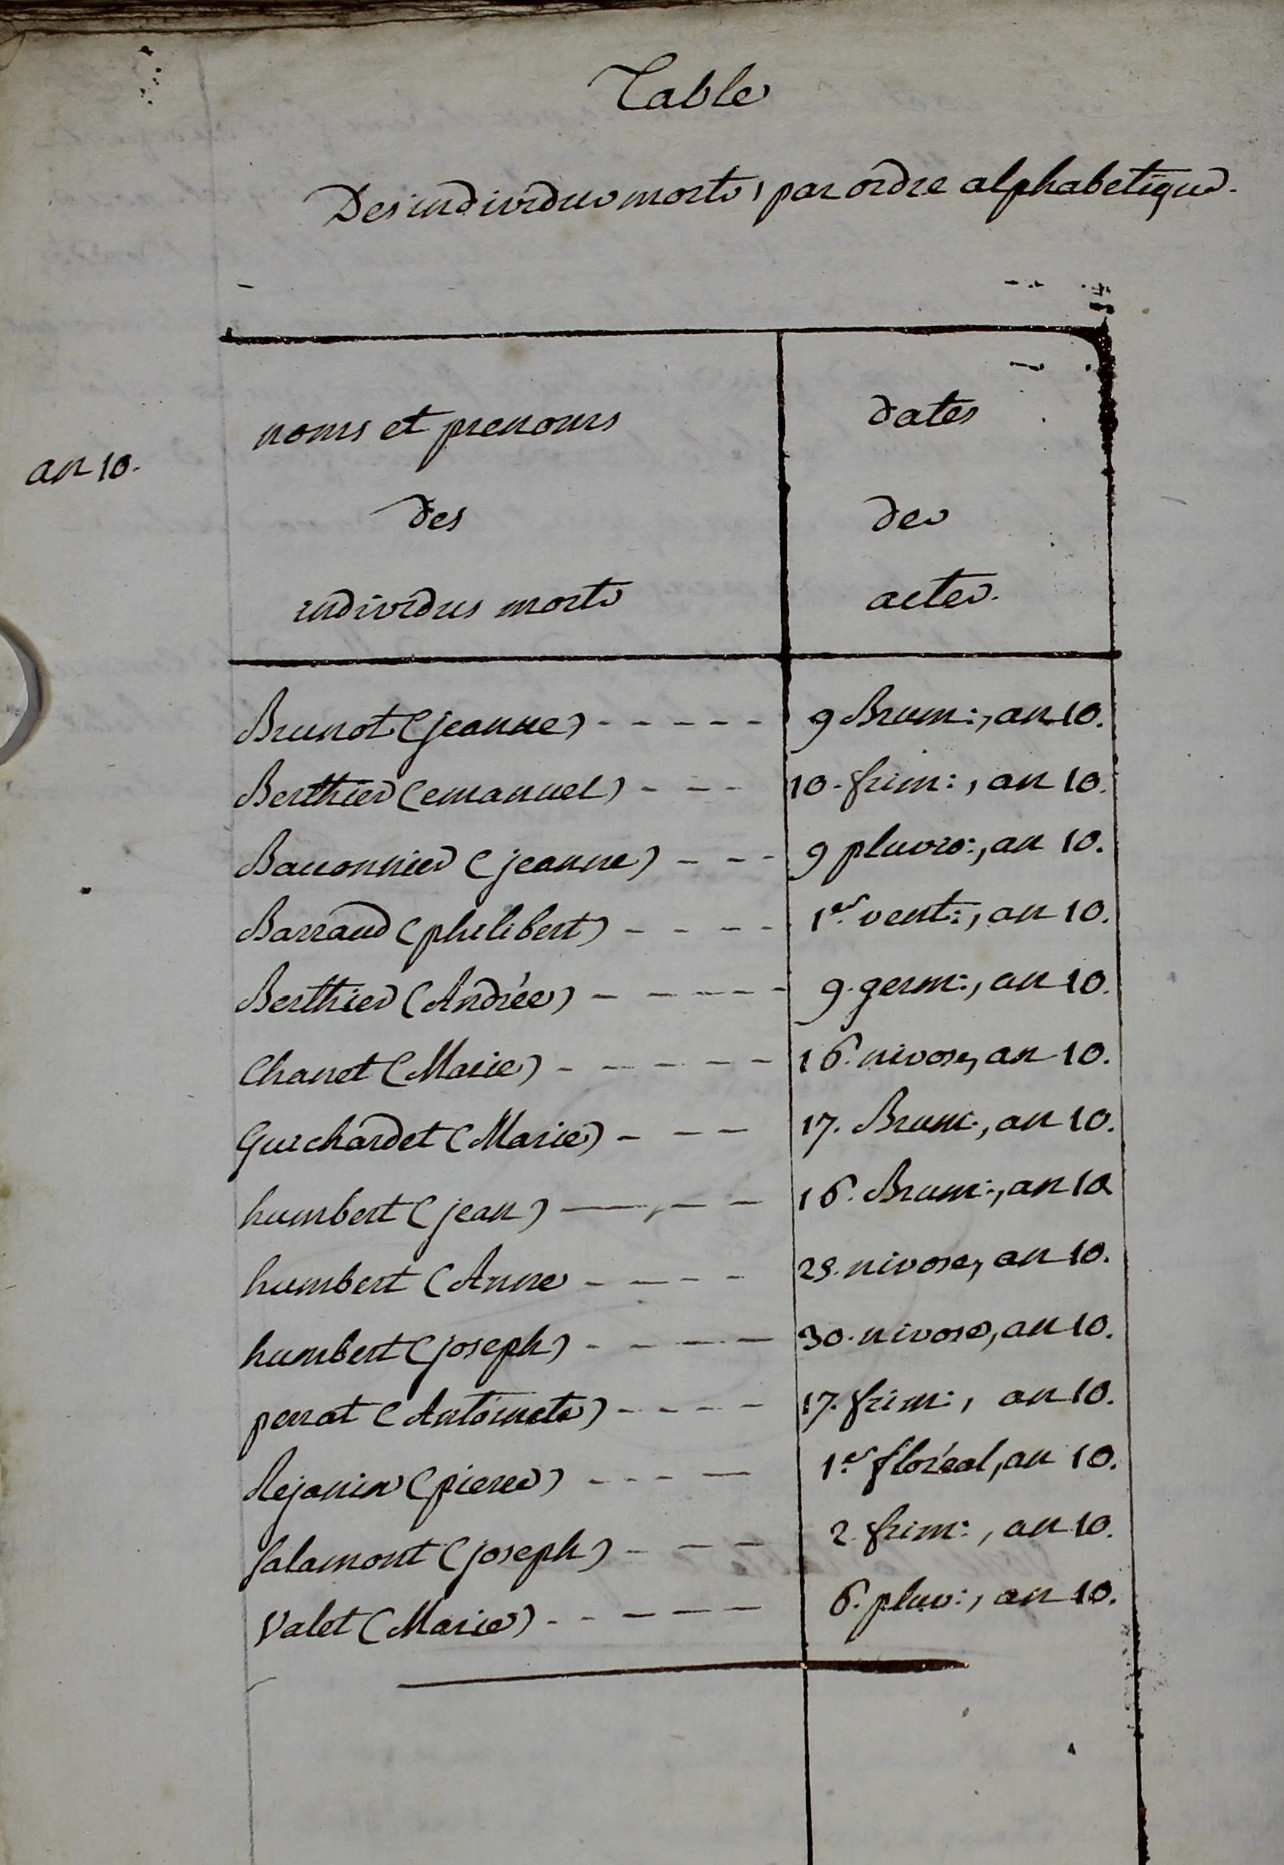 Table
Des individus morts, par ordre alphabetique.
noms et prenoms
dates
an 10.
des
des
individus morts
actes.
Brunot (jeanne) - - - - - 9 Brum:, an 10.
Berthier (emanuel) - - - 10. frim:, an 10.
Bauonnier (jeanne) - - - 9 pluvio:, an 10.
Barraud (philibert) - - - - 1er. vent:, an 10.
Berthier (Andrée) - - - - - - 9. germ:, an 10.
Chanet (Marie) - - - - - - 16. nivose, an 10.
Guichardet (Marie) - - - 17. Brum:, an 10.
humbert (jean) - - - - 16. Brum:, an 10
humbert (Anne - - - - 29. nivose, an 10.
humbert (joseph) - - - - - 30. nivose, an 10.
perrat (Antoinete) - - - - 17. frim:, an 10.
Rejanin (pierre) - - - - 1er. floréal, an 10.
Salamont (joseph) - - - - 2. frim:, an 10.
Valet (Marie) - - - - - 6. pluv:, an 10.